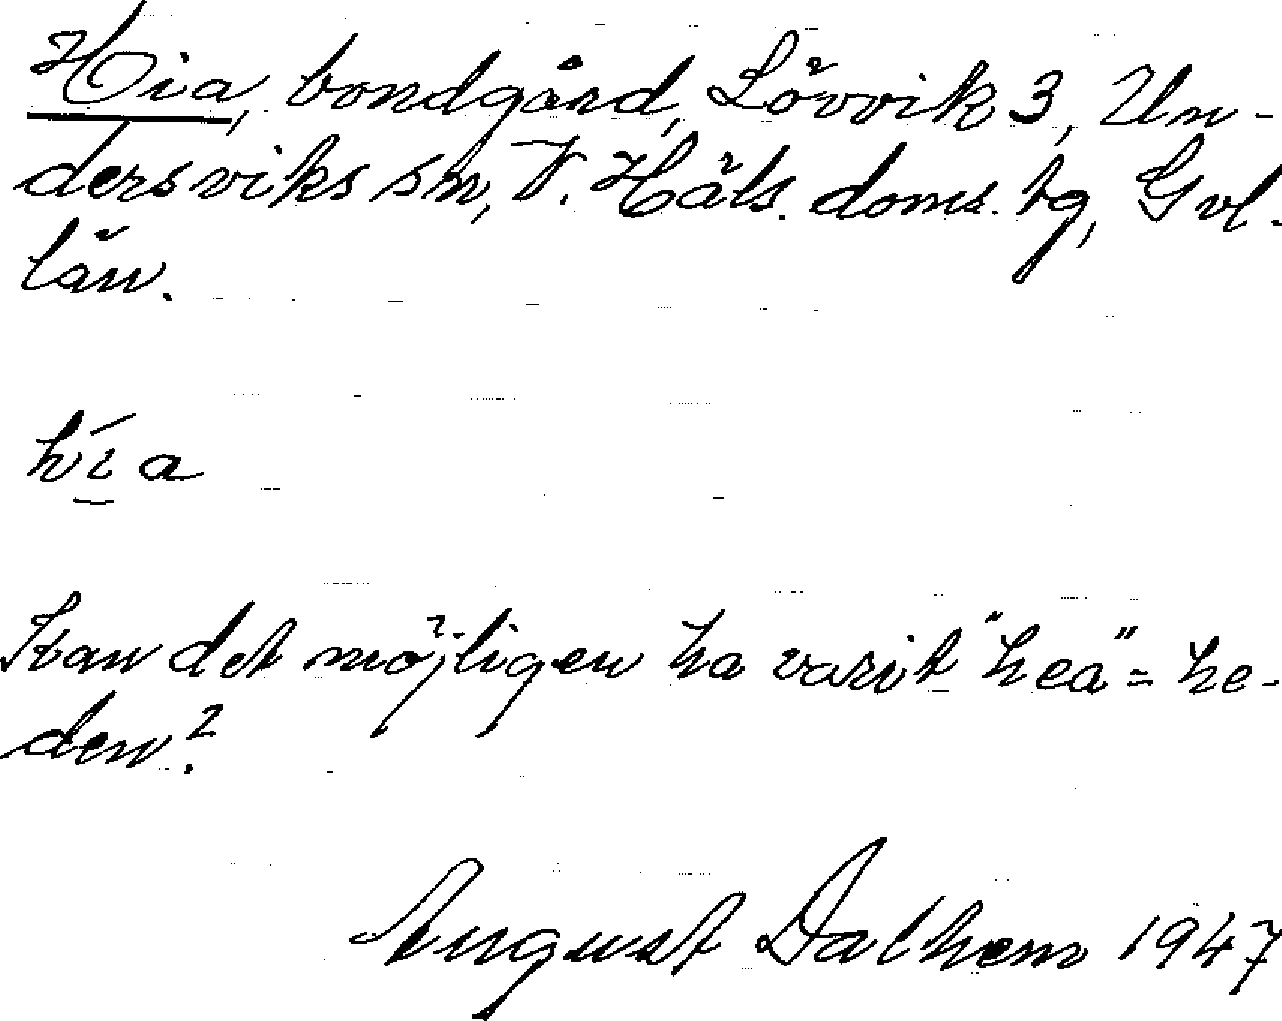 Hia, bondgård, Lövvik 3, Un-
dersviks sn, V. Häls. doms. tg, Gvl.
län.
hí̱a
Kan det möjligen ha varit "hea" = he-
den?
August Dalhem 1947